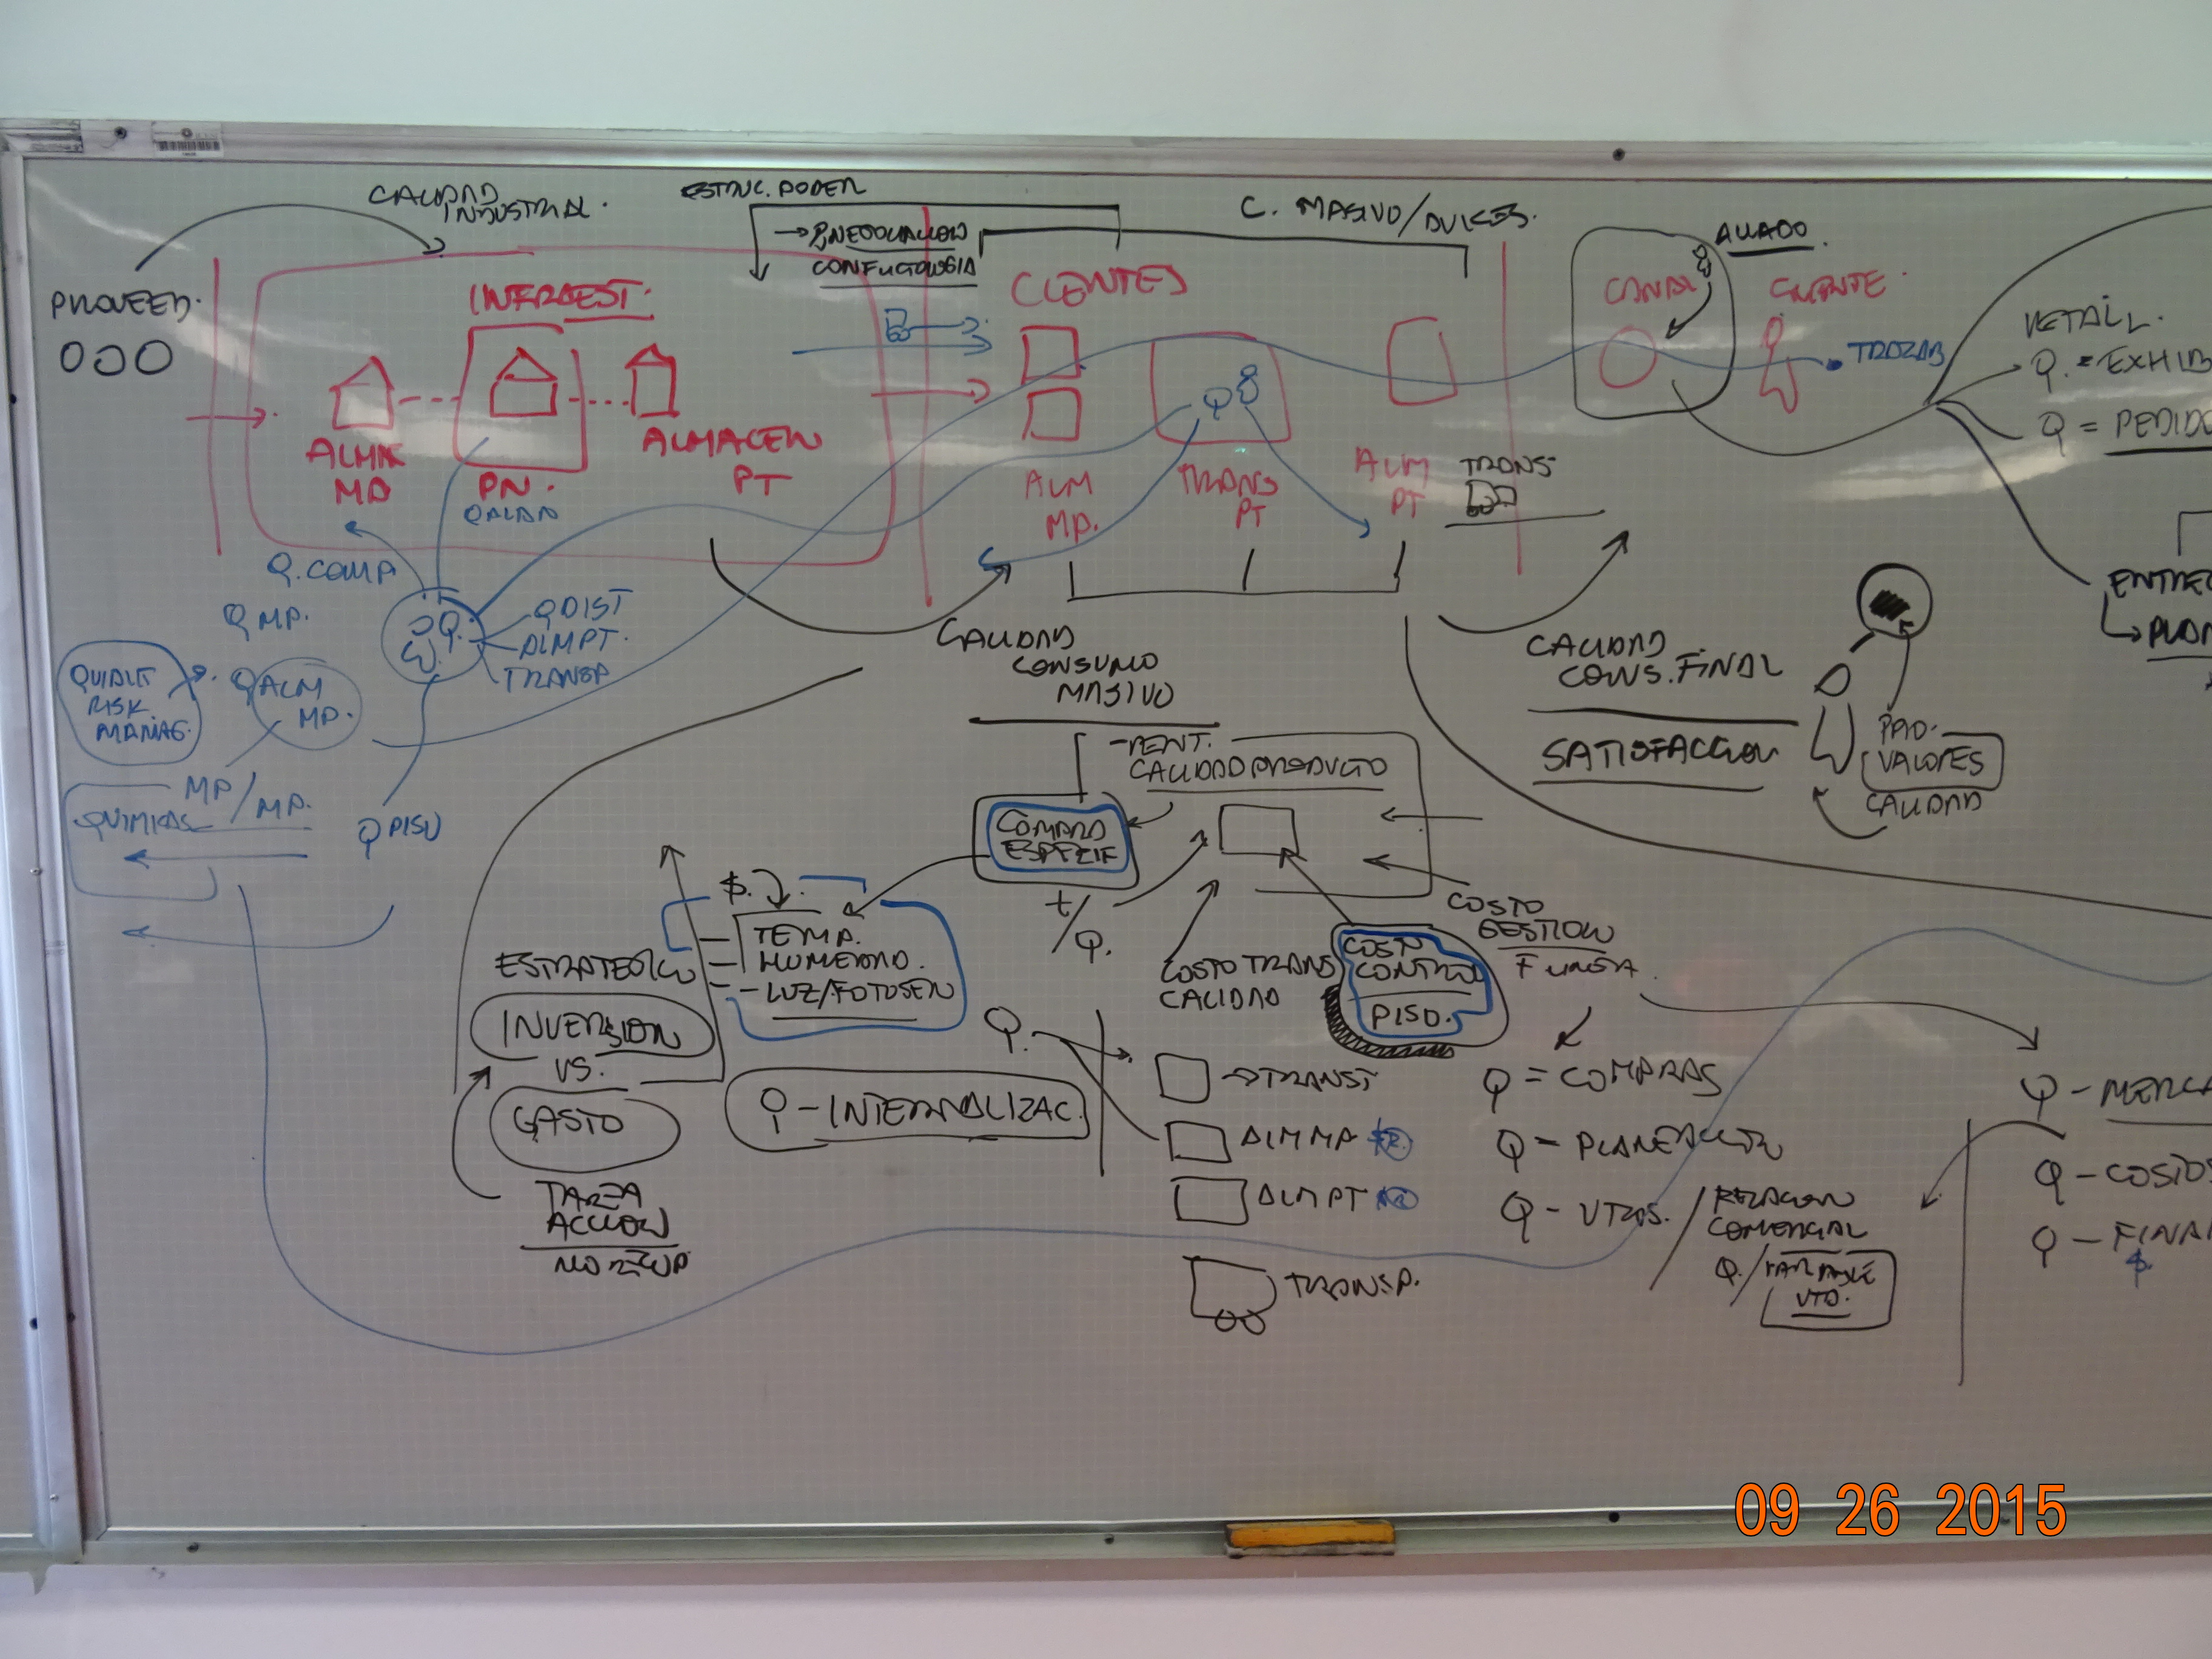 CALIDAD
INDUSTRIAL.
ESTRUC. PODER
C. MASIVO/DULCES.
ALIADO.
→ P/NEGOCIACION
CONFLICTOLOGIA
PROVEED.
INFRAEST.
CLIENTES
CANAL
CLIENTE.
RETAIL.
Q. = EXHIB
Q = PEDIDO
TRAZAB
ALM
MP
PN.
QALAN
ALMACEN
PT
ALM
MP.
TRANS
PT
ALM
PT
TRANS
Q. COMP
Q MP.
Q.
QDIST
ALMPT.
TRANSP
QUALIT
RISK
MANAG.
QALM
MP.
MP/MP.
QUIMICAS
Q PISO
CALIDAD
CONSUMO
MASIVO
CALIDAD
CONS. FINAL
SATISFACCION
PAD.
VALORES
CALIDAD
ENTREG
PLAN
CALIDAD PRODUCTO
COMPRA
ESPECIF
t/Q.
$.
TEMP.
HUMEDAD.
- LUZ/FOTOSEN
ESTRATEGICO
INVERSION
VS.
GASTO
TAREA
ACCION
Q - INTERNALIZAC.
COSTO TRANS
CALIDAD
COSTO
CONTROL
PISO.
COSTO
GESTION
Q.
→TRANST
ALM MP
ALM PT
TRANSP.
Q = COMPRAS
Q - PLANEACION
Q - VTAS.
RELACION
COMERCIAL
Q./VARIABLE
VTA.
Q - MERCA
Q - COSTOS
Q - FINA
$.
09 26 2015